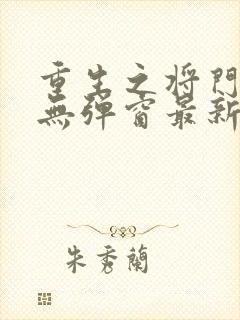 重生之将門
無彈窗最新
朱秀蘭